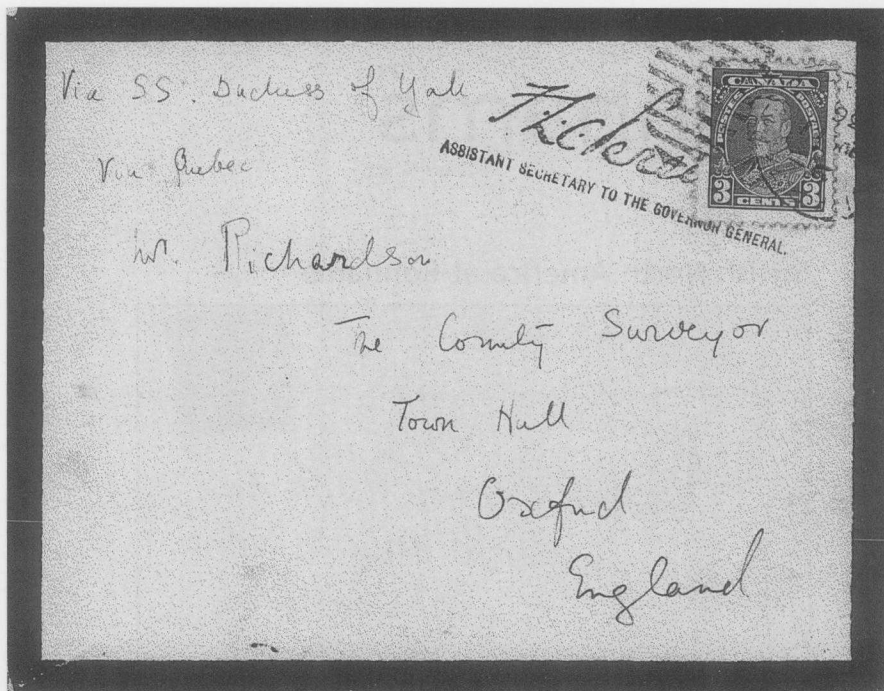 Via SS. Duchess of York
Via Quebec
ASSISTANT SECRETARY TO THE GOVERNOR GENERAL.
CANADA
POSTES POSTAGE
3 CENTS 3
Mr. Richardson
The County Surveyor
Town Hall
Oxford
England